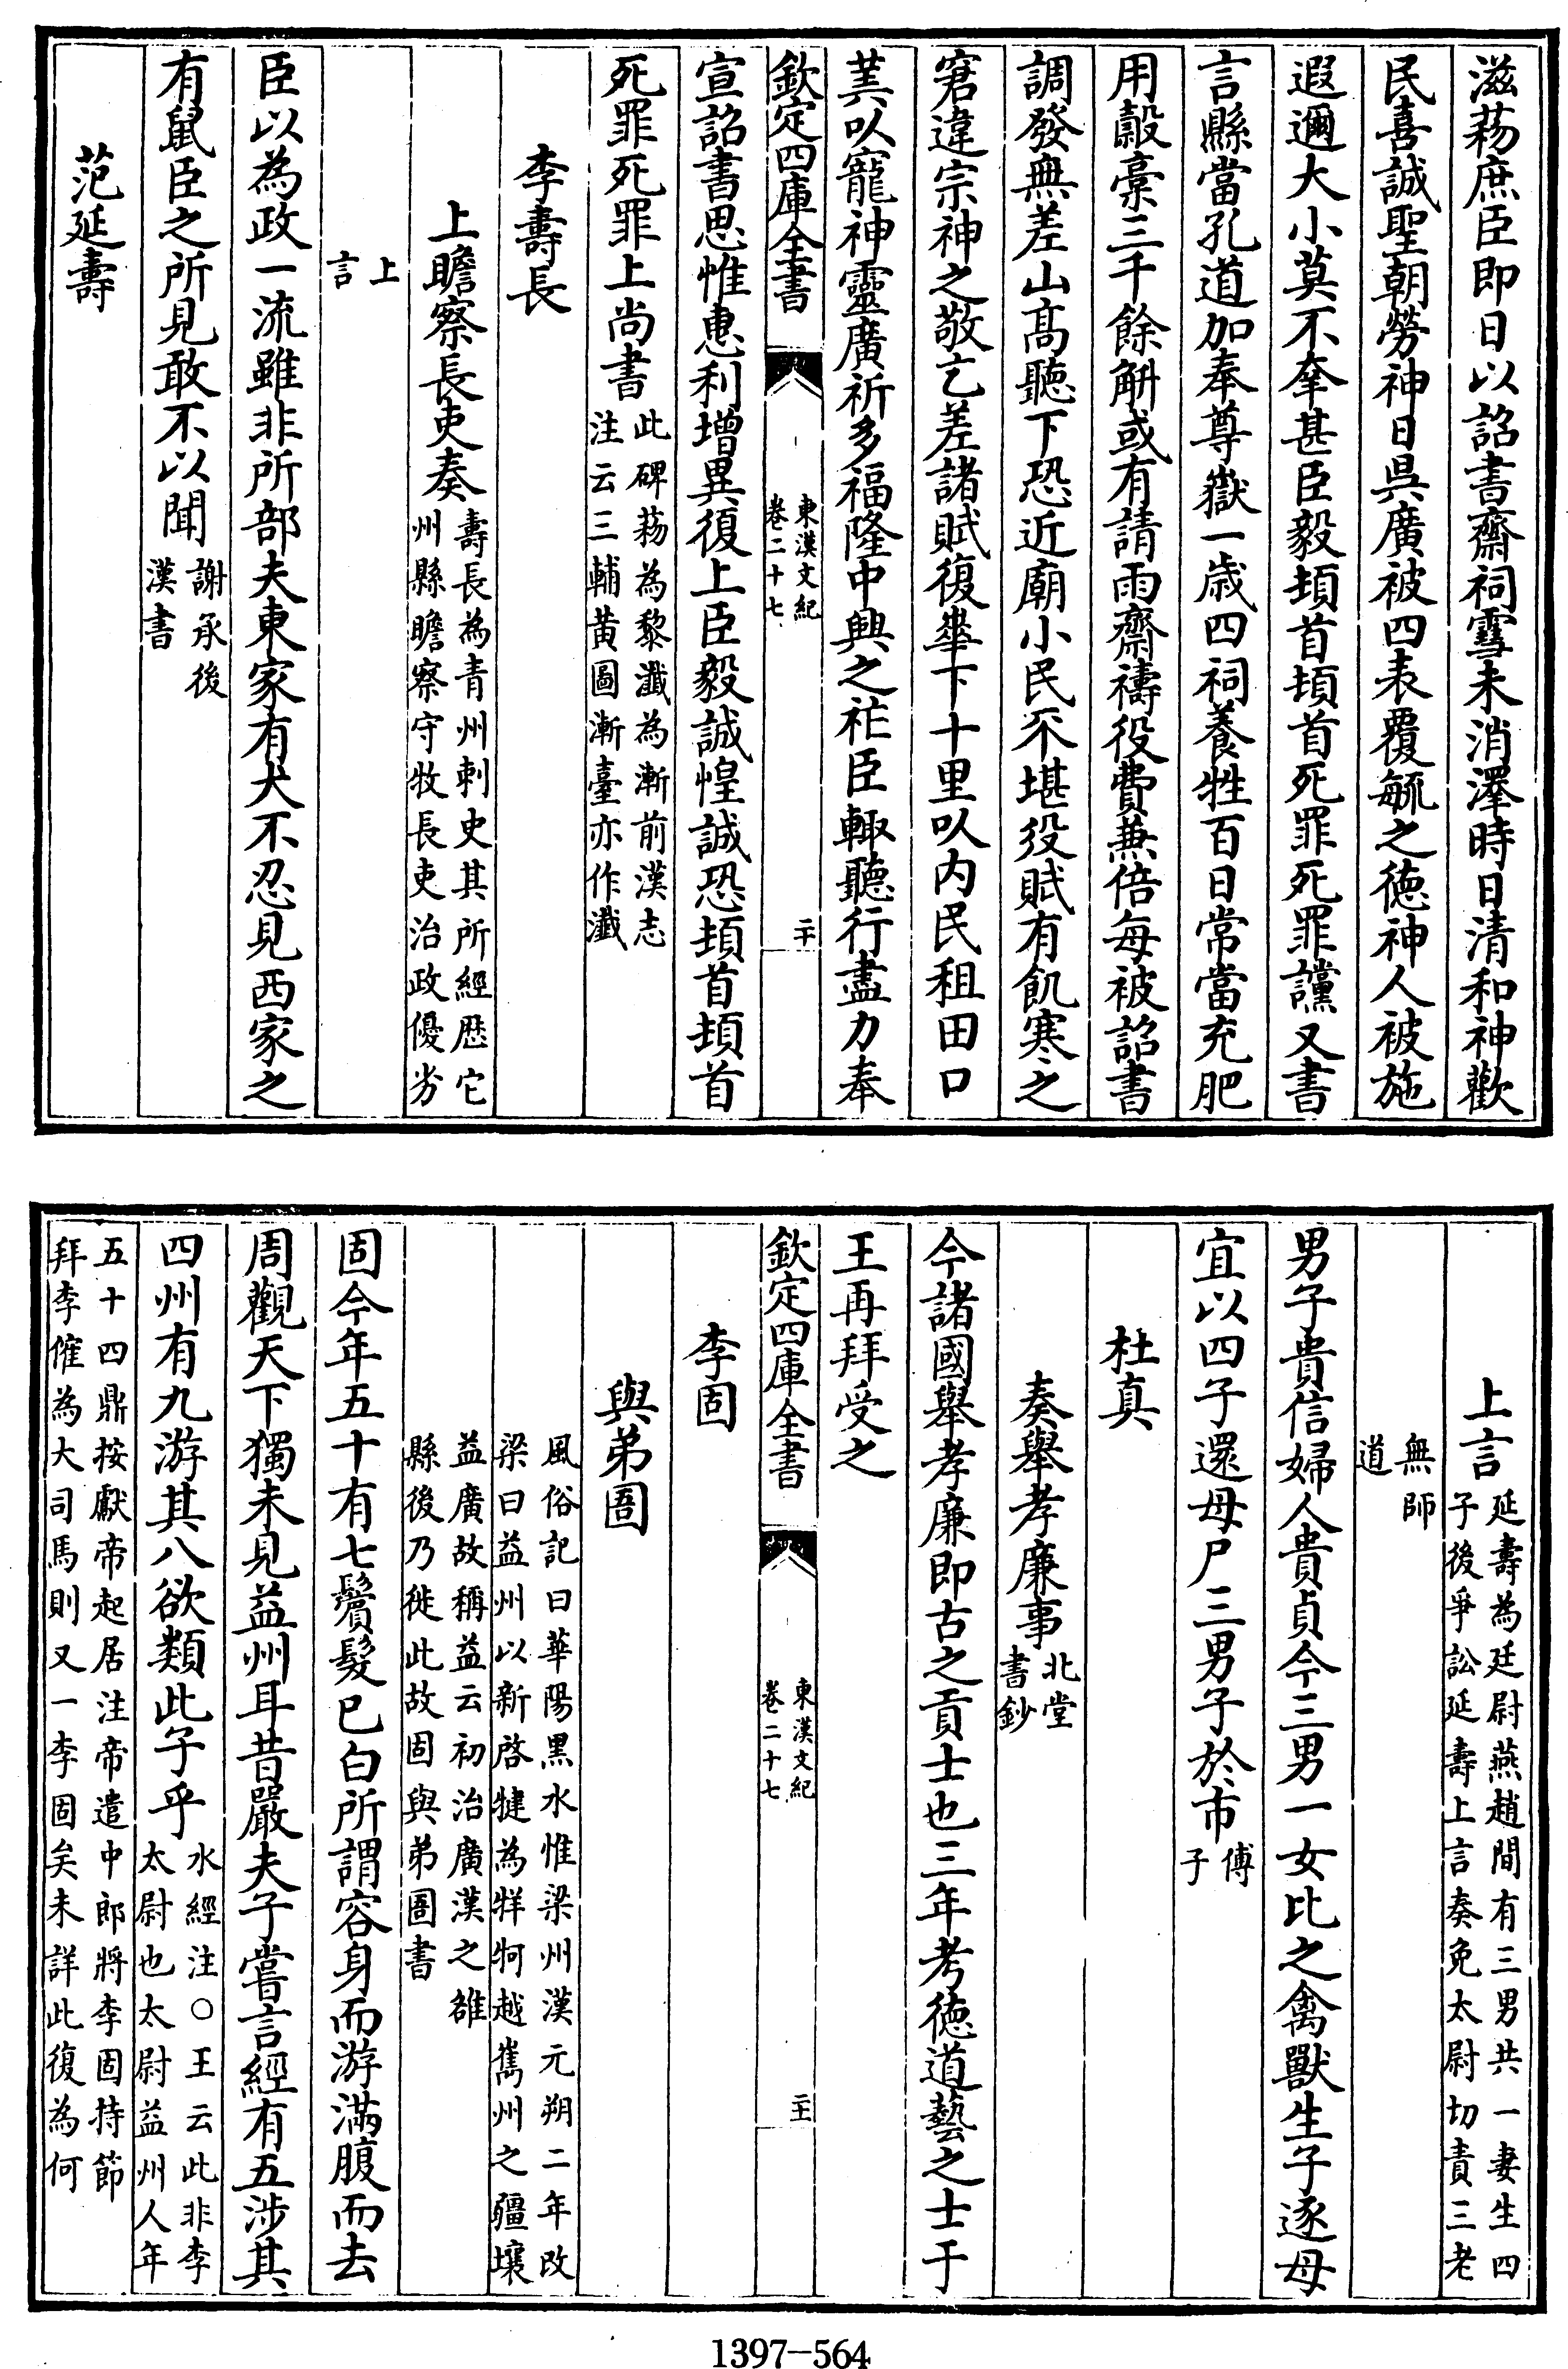 滋蒻庶臣即日以詔書齋祠雪未消澤時日清和神歡
民喜誠聖朝勞神日昃廣被四表覆毓之德神人被施
遐邇大小莫不幸甚臣毅頓首頓首死罪死罪讜又書
言縣當孔道加奉尊嶽一歲四祠養牲百日常當充肥
用穀稾三千餘斛或有請雨齋禱役費兼倍每被詔書
調發無差山高聽下恐近廟小民不堪役賦有飢寒之
窘違宗神之敬乞差諸賦復華下十里以內民租田口
筭以寵神靈廣祈多福隆中興之祚臣輙聽行盡力奉
欽定四庫全書
東漢文紀
卷二十七
二十
宣詔書思惟惠利增異復上臣毅誠惶誠恐頓首頓首
死罪死罪上尚書
此碑蒻為黎瀸為漸前漢志
注云三輔黃圖漸臺亦作瀸
李壽長
上瞻察長吏奏
壽長為青州刺史其所經歷它
州縣瞻察守牧長吏治政優劣
上
言
臣以為政一流雖非所部夫東家有犬不忍見西家之
有鼠臣之所見敢不以聞
謝承後
漢書
范延壽
上言
延壽為廷尉燕趙間有三男共一妻生四
子後爭訟延壽上言奏免太尉切責三老
無師
道
男子貴信婦人貴貞今三男一女比之禽獸生子逐母
宜以四子還母尸三男子於市
傅
子
杜真
奏舉孝廉事
北堂
書鈔
今諸國舉孝廉即古之貢士也三年考德道藝之士于
王再拜受之
欽定四庫全書
東漢文紀
卷二十七
二十一
李固
與弟圄
風俗記曰華陽黑水惟梁州漢元朔二年改
梁曰益州以新啓犍為牂牁越嶲州之疆壤
益廣故稱益云初治廣漢之雒
縣後乃徙此故固與弟圄書
固今年五十有七鬢髮已白所謂容身而游滿腹而去
周觀天下獨未見益州耳昔嚴夫子嘗言經有五涉其
四州有九游其八欲類此子乎
水經注○王云此非李
太尉也太尉益州人年
五十四鼎按獻帝起居注帝遣中郎將李固持節
拜李傕為大司馬則又一李固矣未詳此復為何
1397-564